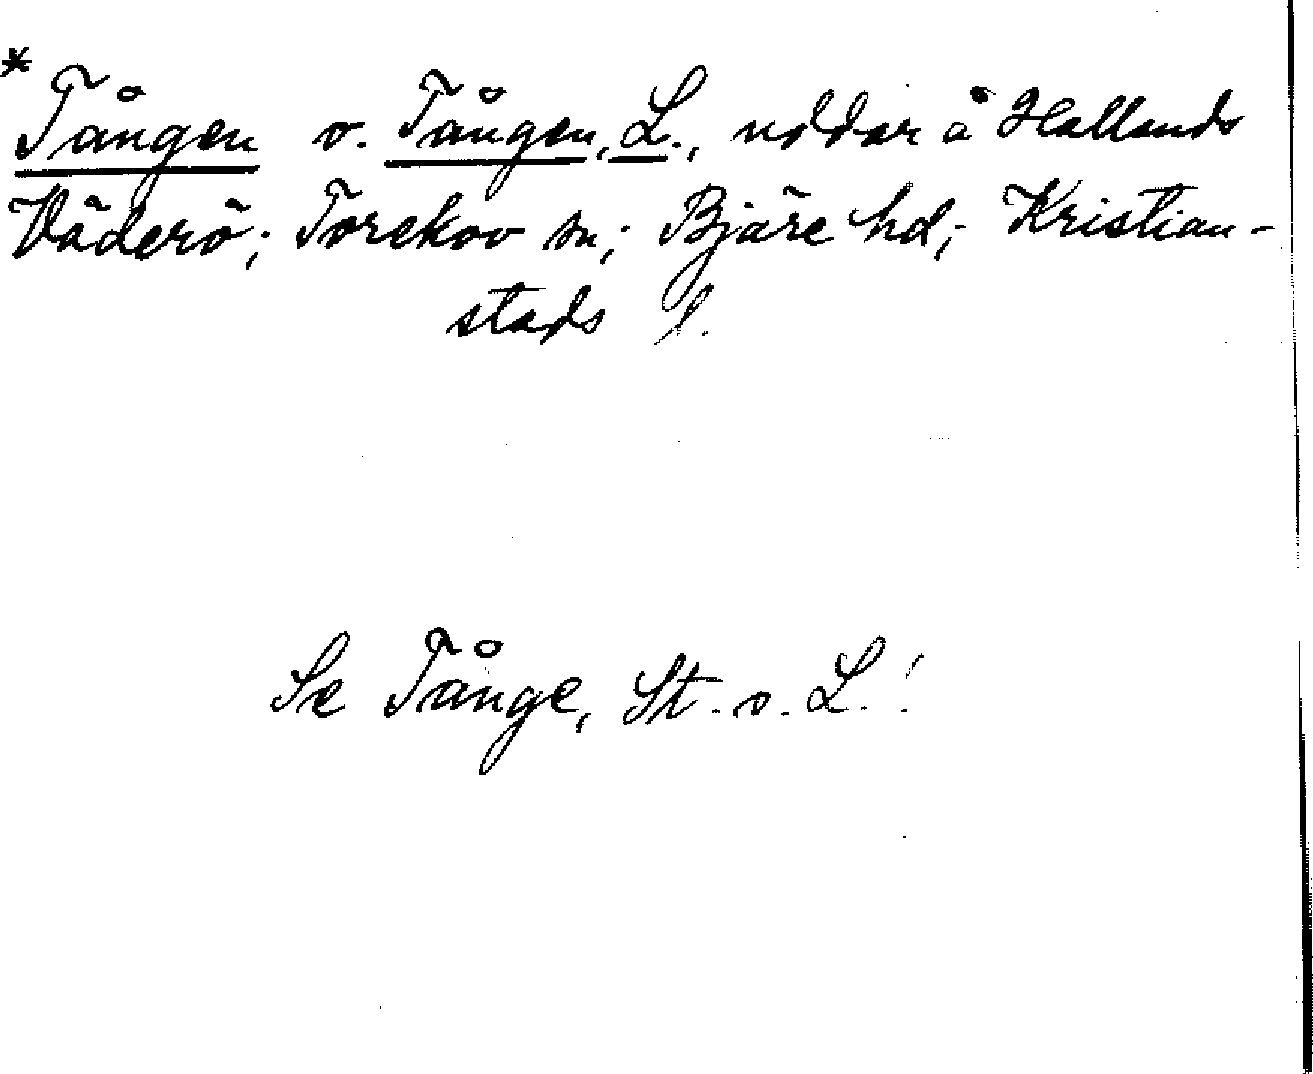 * Tången o. Tången, L., uddar å Hallands
Väderö; Torekov sn; Bjäre hd; Kristian-
stads l.
Se Tånge, St. o. L.!